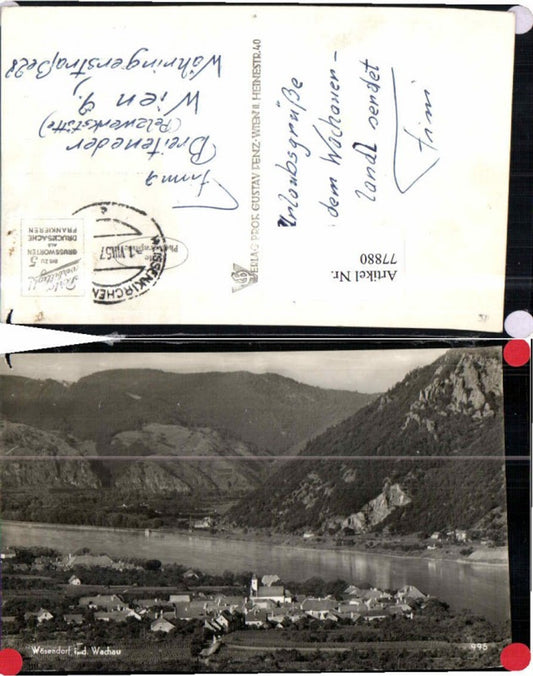 Urlaubsgrüße
dem Wachauer-
landl sendet
Firma
Breiteneder
(Pelzwerkstätte)
Wien 9.,
Währingerstraße 28
VERLAG PROF. GUSTAV DENZ-WIEN II. HEINESTR. 40
Artikel Nr.
77880
WEISSENKIRCHEN
VIII 57
BIS ZU 5
GRUSSWORTEN
ALS
DRUCKSACHE
FRANKIEREN
Wösendorf i. d. Wachau
995